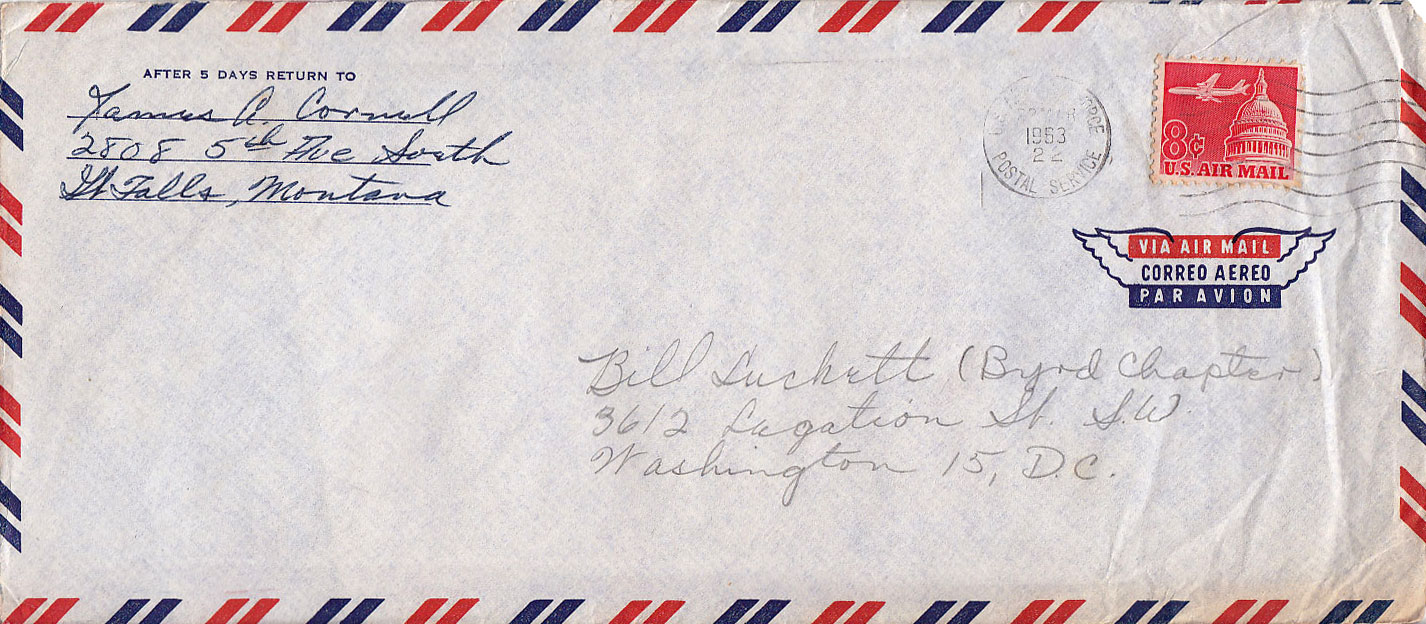 AFTER 5 DAYS RETURN TO
James A. Cornell
2808 5th Ave South
Gt Falls, Montana
1963
22
POSTAL SERVICE
8¢
U.S. AIR MAIL
VIA AIR MAIL
CORREO AEREO
PAR AVION
Bill Luckett (Byrd Chapter)
3612 Lagation St. S.W.
Washington 15, D.C.